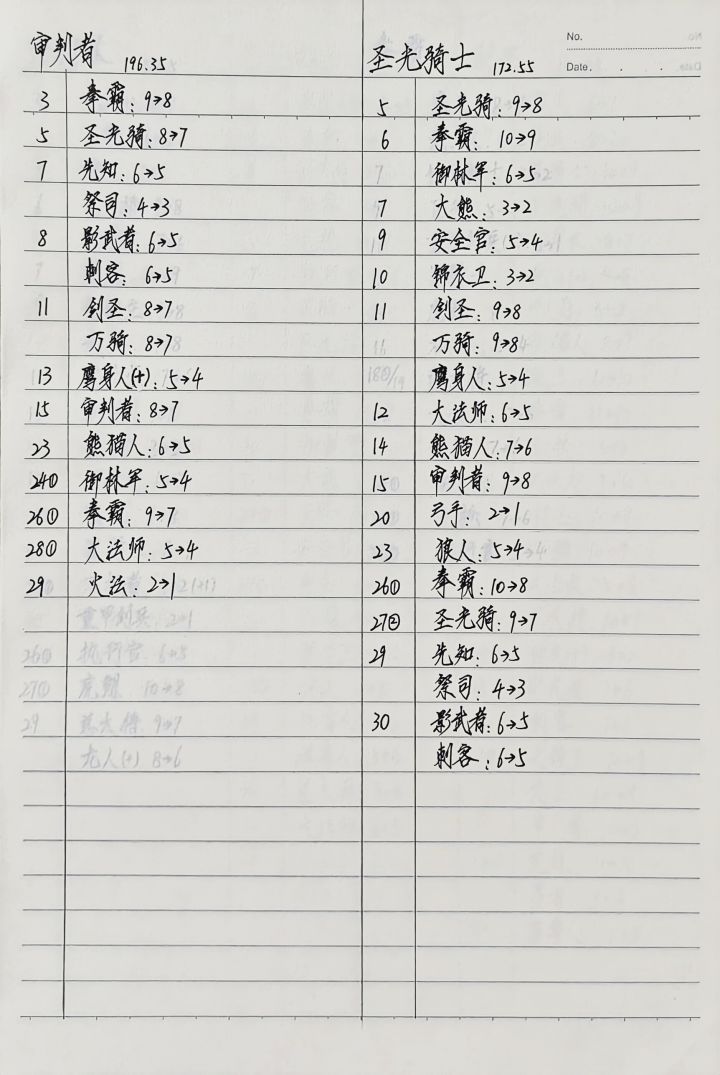 审判者 196.35
3 拳霸：9→8
5 圣光骑：8→7
7 先知：6→5
祭司：4→3
8 影武者：6→5
刺客：6→5
11 剑圣：8→7
万骑：8→7
13 鹰身人(+)：5→4
15 审判者：8→7
23 熊猫人：6→5
24① 御林军：5→4
26① 拳霸：9→7
28① 大法师：5→4
29 火法：2→1
No.
圣光骑士 172.55
Date. . .
5 圣光骑：9→8
6 拳霸：10→9
7 御林军：6→5
7 大熊：3→2
9 安全官：5→4
10 锦衣卫：3→2
11 剑圣：9→8
万骑：9→8
鹰身人：5→4
12 大法师：6→5
14 熊猫人：7→6
15 审判者：9→8
20 弓手：2→1
23 狼人：5→4
26① 拳霸：10→8
27② 圣光骑：9→7
29 先知：6→5
祭司：4→3
30 影武者：6→5
刺客：6→5